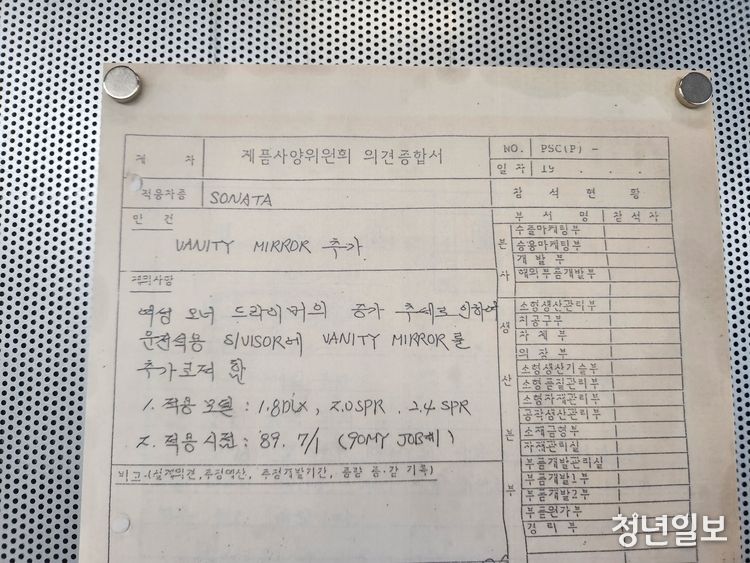 제 차 제품사양위원회 의견종합서 NO. PSC(P) -
일 자 19 . . .
적용차종 SONATA 참 석 현 황
안 건 부 서 명 참 석 자
VANITY MIRROR 추가
본 사
수출마케팅부
승용마케팅부
개 발 부
해외부품개발부
제의사항
여성 오너 드라이버의 증가 추세로 인하여
운전석용 S/VISOR에 VANITY MIRROR를
추가코져 함
1. 적용 모델 : 1.8DLX, 2.0SPR, 2.4SPR
2. 적용 시점 : 89. 7/1 (90MY JOB#1)
비고-(설계의견, 투정예산, 추정개발기간, 품량 품·감 기록)
생 산 본 부
소형생산관리부
치공구부
차 체 부
의 장 부
소형생산기술부
소형품질관리부
소형자재관리부
공작생산관리부
소재금형부
자재관리실
부품개발관리실
부품개발1부
부품개발2부
부품원가부
경 리 부
청년일보